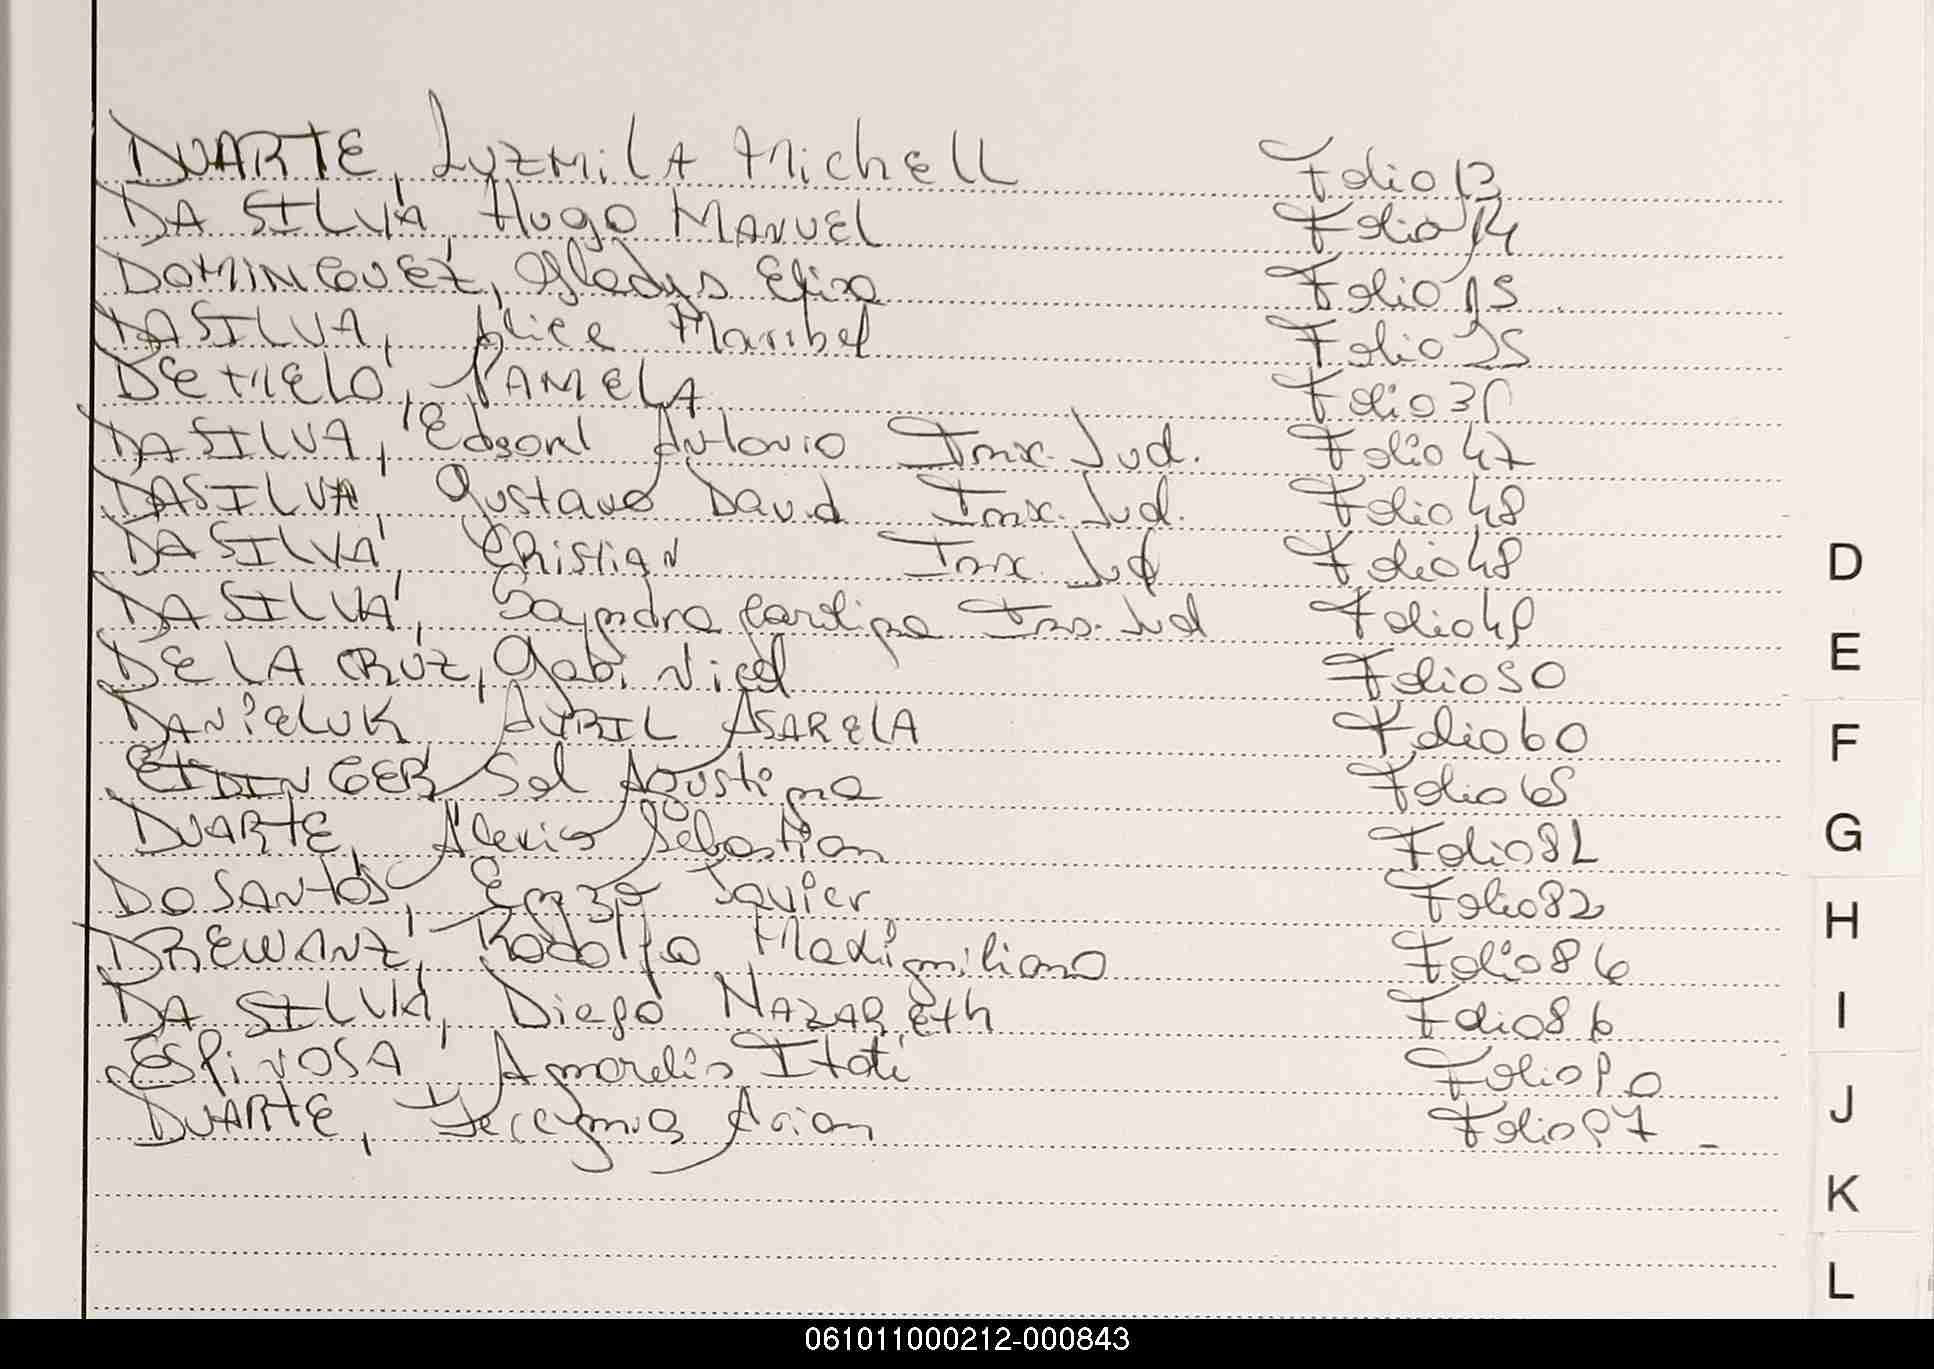 DUARTE, Luzmila Michell Folio 13
DA SILVA, Hugo Manuel Folio 14
DOMINGUEZ, Gladys Elisa Folio 15
DA SILVA, Alice Maribel Folio 25
DE MELO, PAMELA Folio 39
DA SILVA, Edsonl Antonio Inx. Jud. Folio 47
DA SILVA, Gustavo David Inx. Jud. Folio 48
DA SILVA, Cristian Inx. Jud Folio 48
DA SILVA, Sayndra Carolina Ins. Jud Folio 49
DE LA CRUZ, Gabi Nicol Folio 50
DANIELUK AVRIL ASARELA Folio 60
EIDINGER Sol Agustina Folio 65
DUARTE, Alexis Sebastian Folio 82
DO SANTOS, Enzo Javier Folio 82
DREWANZ, Rodolfo Maximiliano Folio 86
DA SILVA, Diego NAZARETH Folio 86
ESPINOSA, Amarelis Itati Folio 90
DUARTE, Arian Folio 97 -
D
E
F
G
H
I
J
K
L
061011000212-000843